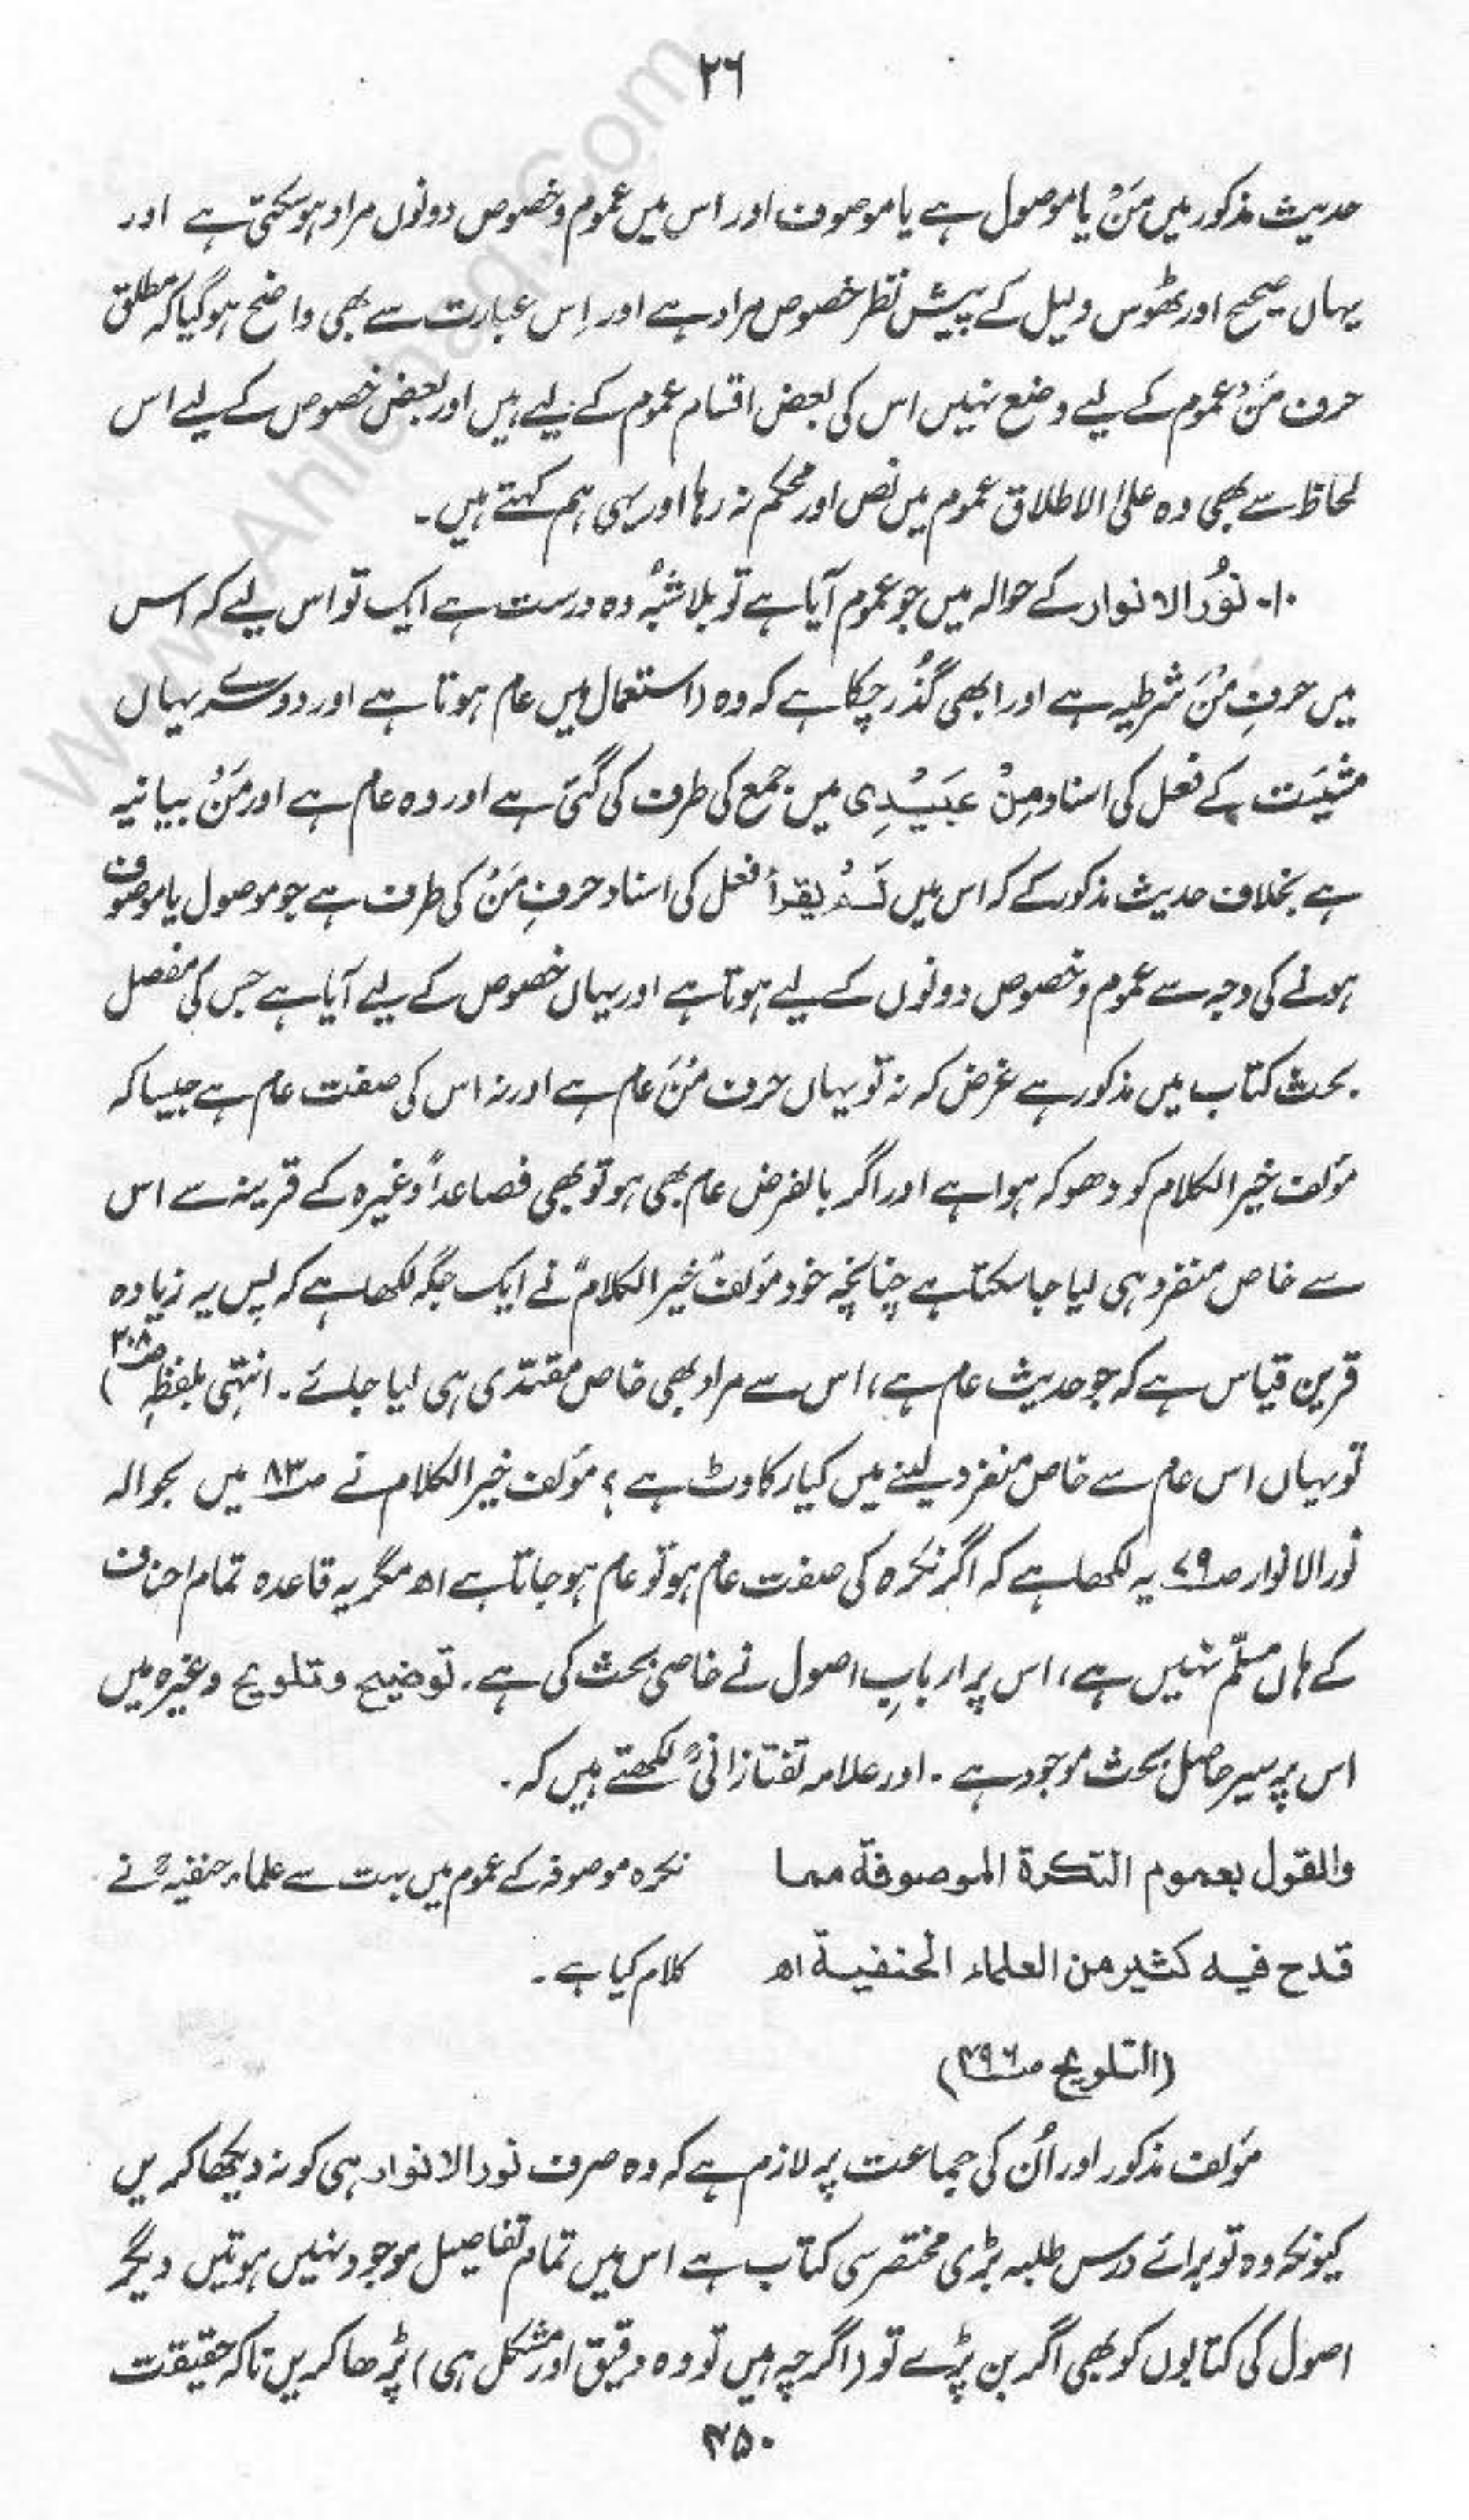 ۲۶
حدیث مذکور میں مَنْ یا موصول ہے یا موصوف اور اس میں عموم وخصوص دونوں مراد ہو سکتی ہے اور
یہاں صحیح اور ٹھوس دلیل کے پیش نظر خصوص مراد ہے اور اِس عبارت سے بھی واضح ہو گیا کہ مطلق
حرف مَنْ عموم کے لیے وضع نہیں اس کی بعض اقسام عموم کے لیے ہیں اور بعض خصوص کے لیے اس
لحاظ سے بھی وہ علیٰ الاطلاق عموم میں نص اور محکم نہ رہا اور یہی ہم کہتے ہیں۔
۱۰۔ نورُ الانوار کے حوالہ میں جو عموم آیا ہے تو بلا شبُہ وہ درست ہے ایک تو اس لیے کہ اس
میں حرفِ مَنْ شرطیہ ہے اور ابھی گُذر چکا ہے کہ وہ (استعمال میں عام ہوتا ہے اور دوسرے یہاں
مشیَت کے فعل کی اسناد مِنْ عَبِیْدِی میں جمع کی طرف کی گئی ہے اور وہ عام ہے اور مَنْ بیانیہ
ہے بخلاف حدیث مذکور کے کہ اس میں لَمْ یقرأ فعل کی اسناد حرفِ مَنْ کی طرف ہے جو موصول یا موصوف
ہونے کی وجہ سے عموم وخصوص دونوں کے لیے ہوتا ہے اور یہاں خصوص کے لیے آیا ہے جس کی مفصل
بحث کتاب میں مذکور ہے غرض کہ نہ تو یہاں حرف مَنْ عام ہے اور نہ اس کی صفت عام ہے جیسا کہ
مؤلف خیر الکلام کو دھوکہ ہوا ہے اور اگر بالفرض عام بھی ہو تو بھی فصاعداً وغیرہ کے قرینہ سے اس
سے خاص منفرد ہی لیا جا سکتا ہے چنانچہ خود مؤلف خیر الکلام نے ایک جگہ لکھا ہے کہ پس یہ زیادہ
قرین قیاس ہے کہ جو حدیث عام ہے، اس سے مراد بھی خاص مقتدی ہی لیا جائے۔ انتہٰی بلفظہٖ ص۲۰۸)
تو یہاں اس عام سے خاص منفرد لینے میں کیا رکاوٹ ہے؟ مؤلف خیر الکلام نے ص۸۳ میں بحوالہ
نور الانوار ص۷۹ یہ لکھا ہے کہ اگر نکرہ کی صفت عام ہو تو عام ہو جاتا ہے اھ مگر یہ قاعدہ تمام احناف
کے ہاں مسلّم نہیں ہے، اس پر اربابِ اصول نے خاصی بحث کی ہے۔ توضیح وتلویح وغیرہ میں
اس پر سیر حاصل بحث موجود ہے۔ اور علامہ تفتازانیؒ لکھتے ہیں کہ۔
والقول بعموم النکرة الموصوفة مما نکرہ موصوفہ کے عموم میں بہت سے علماء حنفیہؒ نے
قدح فیه کثیر من العلماء الحنفیة اھ کلام کیا ہے۔
(التلویح ص۳۹۶)
مؤلف مذکور اور اُن کی جماعت پر لازم ہے کہ وہ صرف نور الانوار ہی کو نہ دیکھا کریں
کیونکہ وہ تو برائے درس طلبہ بڑی مختصر سی کتاب ہے اس میں تمام تفاصیل موجود نہیں ہوتیں دیگر
اصول کی کتابوں کو بھی اگر بن پڑے تو (اگرچہ ہیں تو وہ دقیق اور مشکل ہی) پڑھا کریں تاکہ حقیقت
۴۵۰
www.Ahlehaq.Com